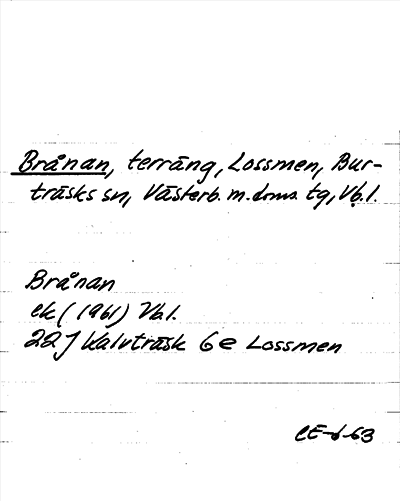 Brånan, terräng, Lossmen, Bur-
träsks sn, Västerb. m. doms. tg, Vb.l.
Brånan
ek (1961) Vb.l.
22J Kalvträsk 6e Lossmen
CE-6-63